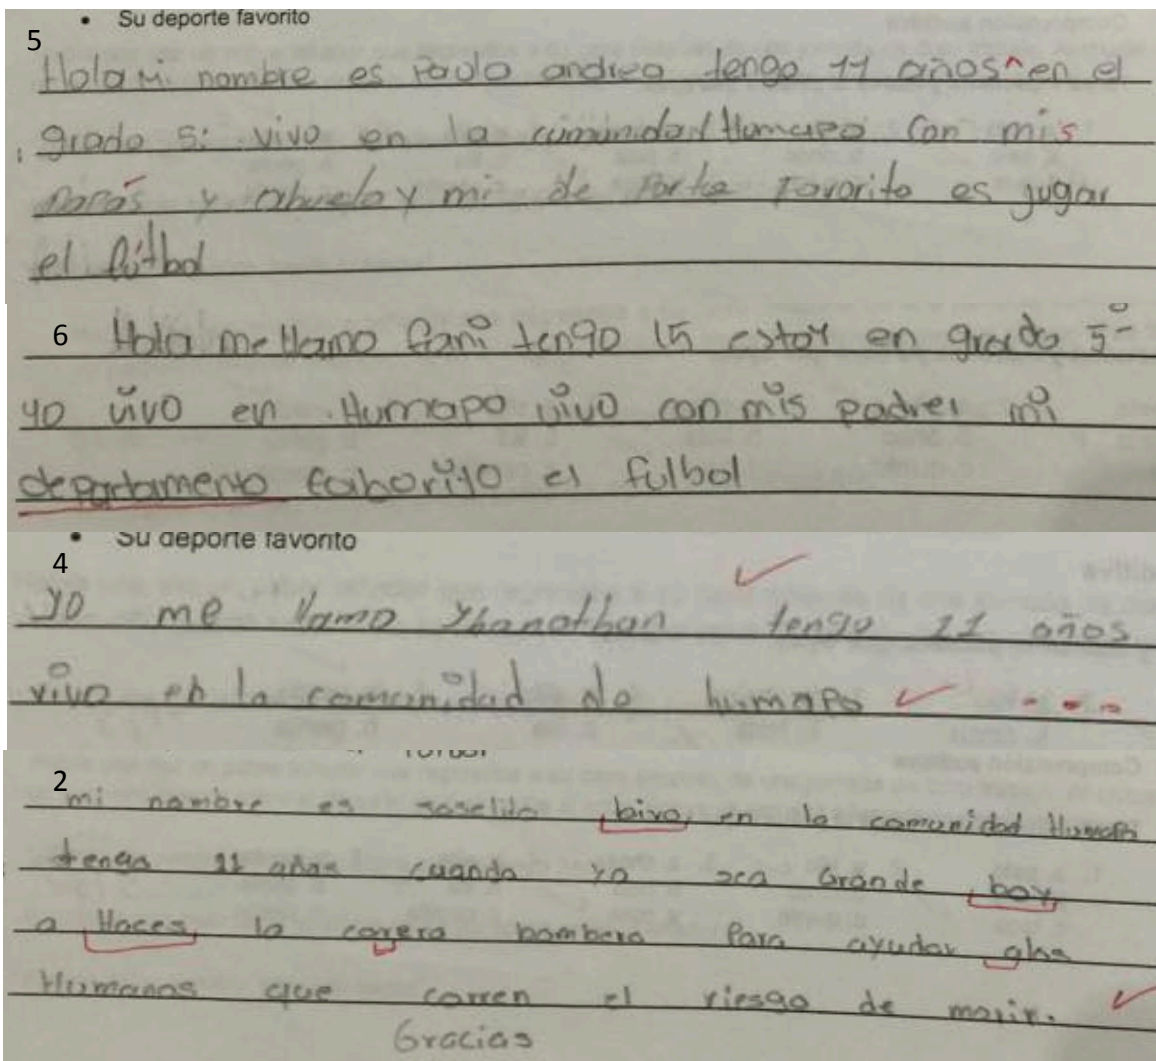 • Su deporte favorito
5
Hola Mi nombre es Paola andrea tengo 11 años ^ en el
grado 5: vivo en la cumunidad Humapo Con mis
Papás y abuelo y mi de Porte Favorito es jugar
el fútbol
6 Hola me llamo fani tengo 15 estoy en grado 5º
yo vivo en Humapo vivo con mis padres mi
departamento faborito es fulbol
• Su deporte favorito
4
yo me llamo Yhanathan tengo 11 años
vivo en la comunidad de humapo
2
mi nombre es Joselito bivo en la comunidad Humapo
tengo 11 años cuando yo sea Grande boy
a Haces la carera bombero Para ayudar alos
Humanos que corren el riesgo de morir.
Gracias